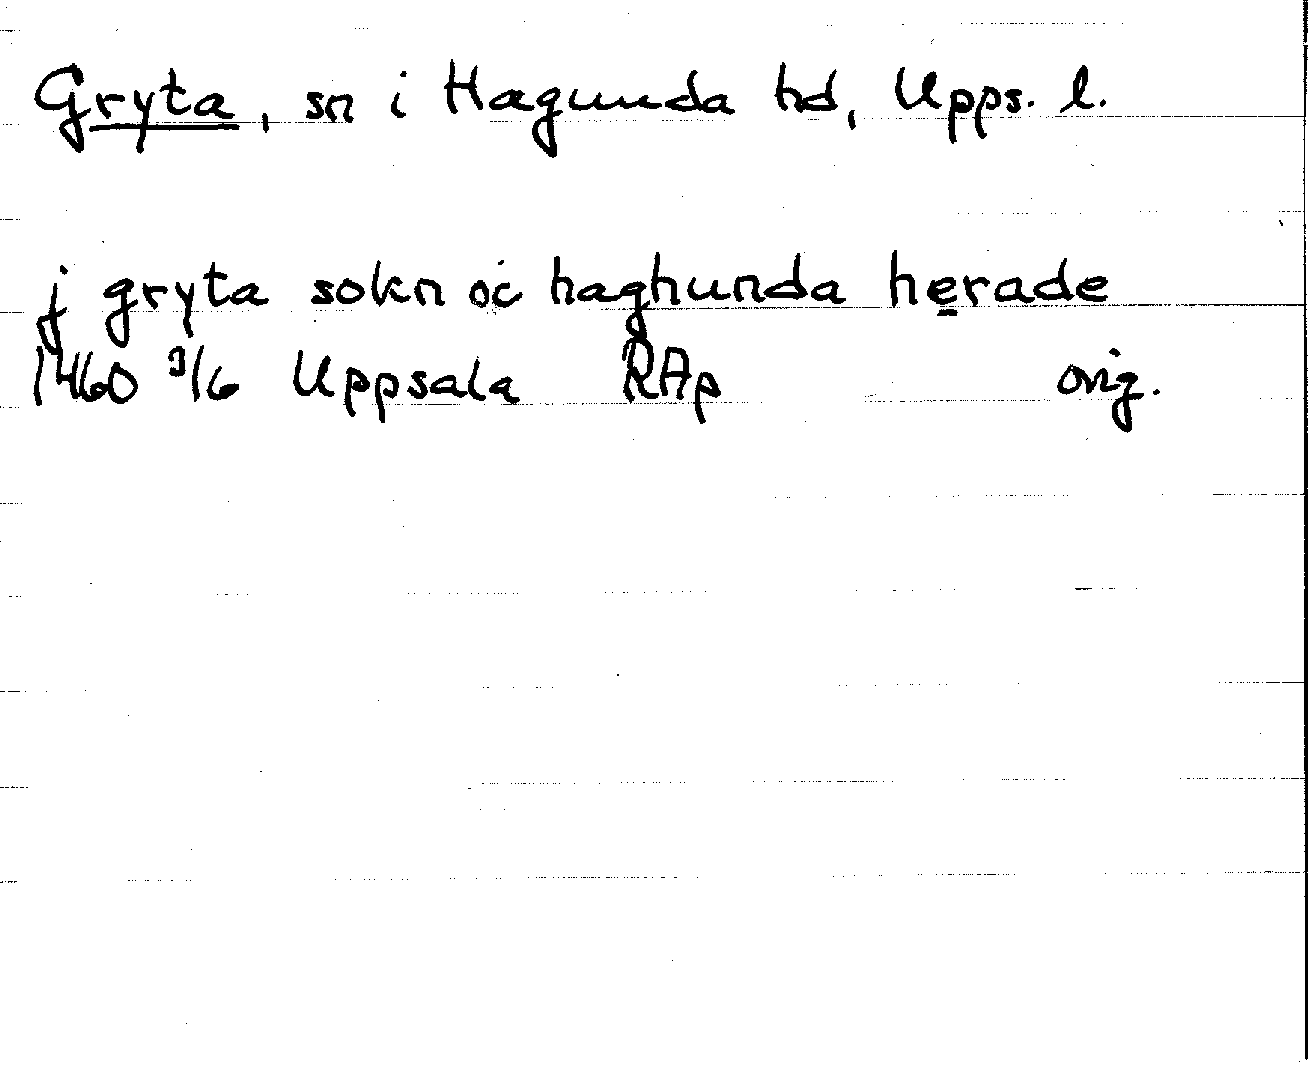 Gryta, sn i Hagunda hd, Upps. l.
j gryta sokn oc haghunda herade
1460 9/6 Uppsala RAp orig.